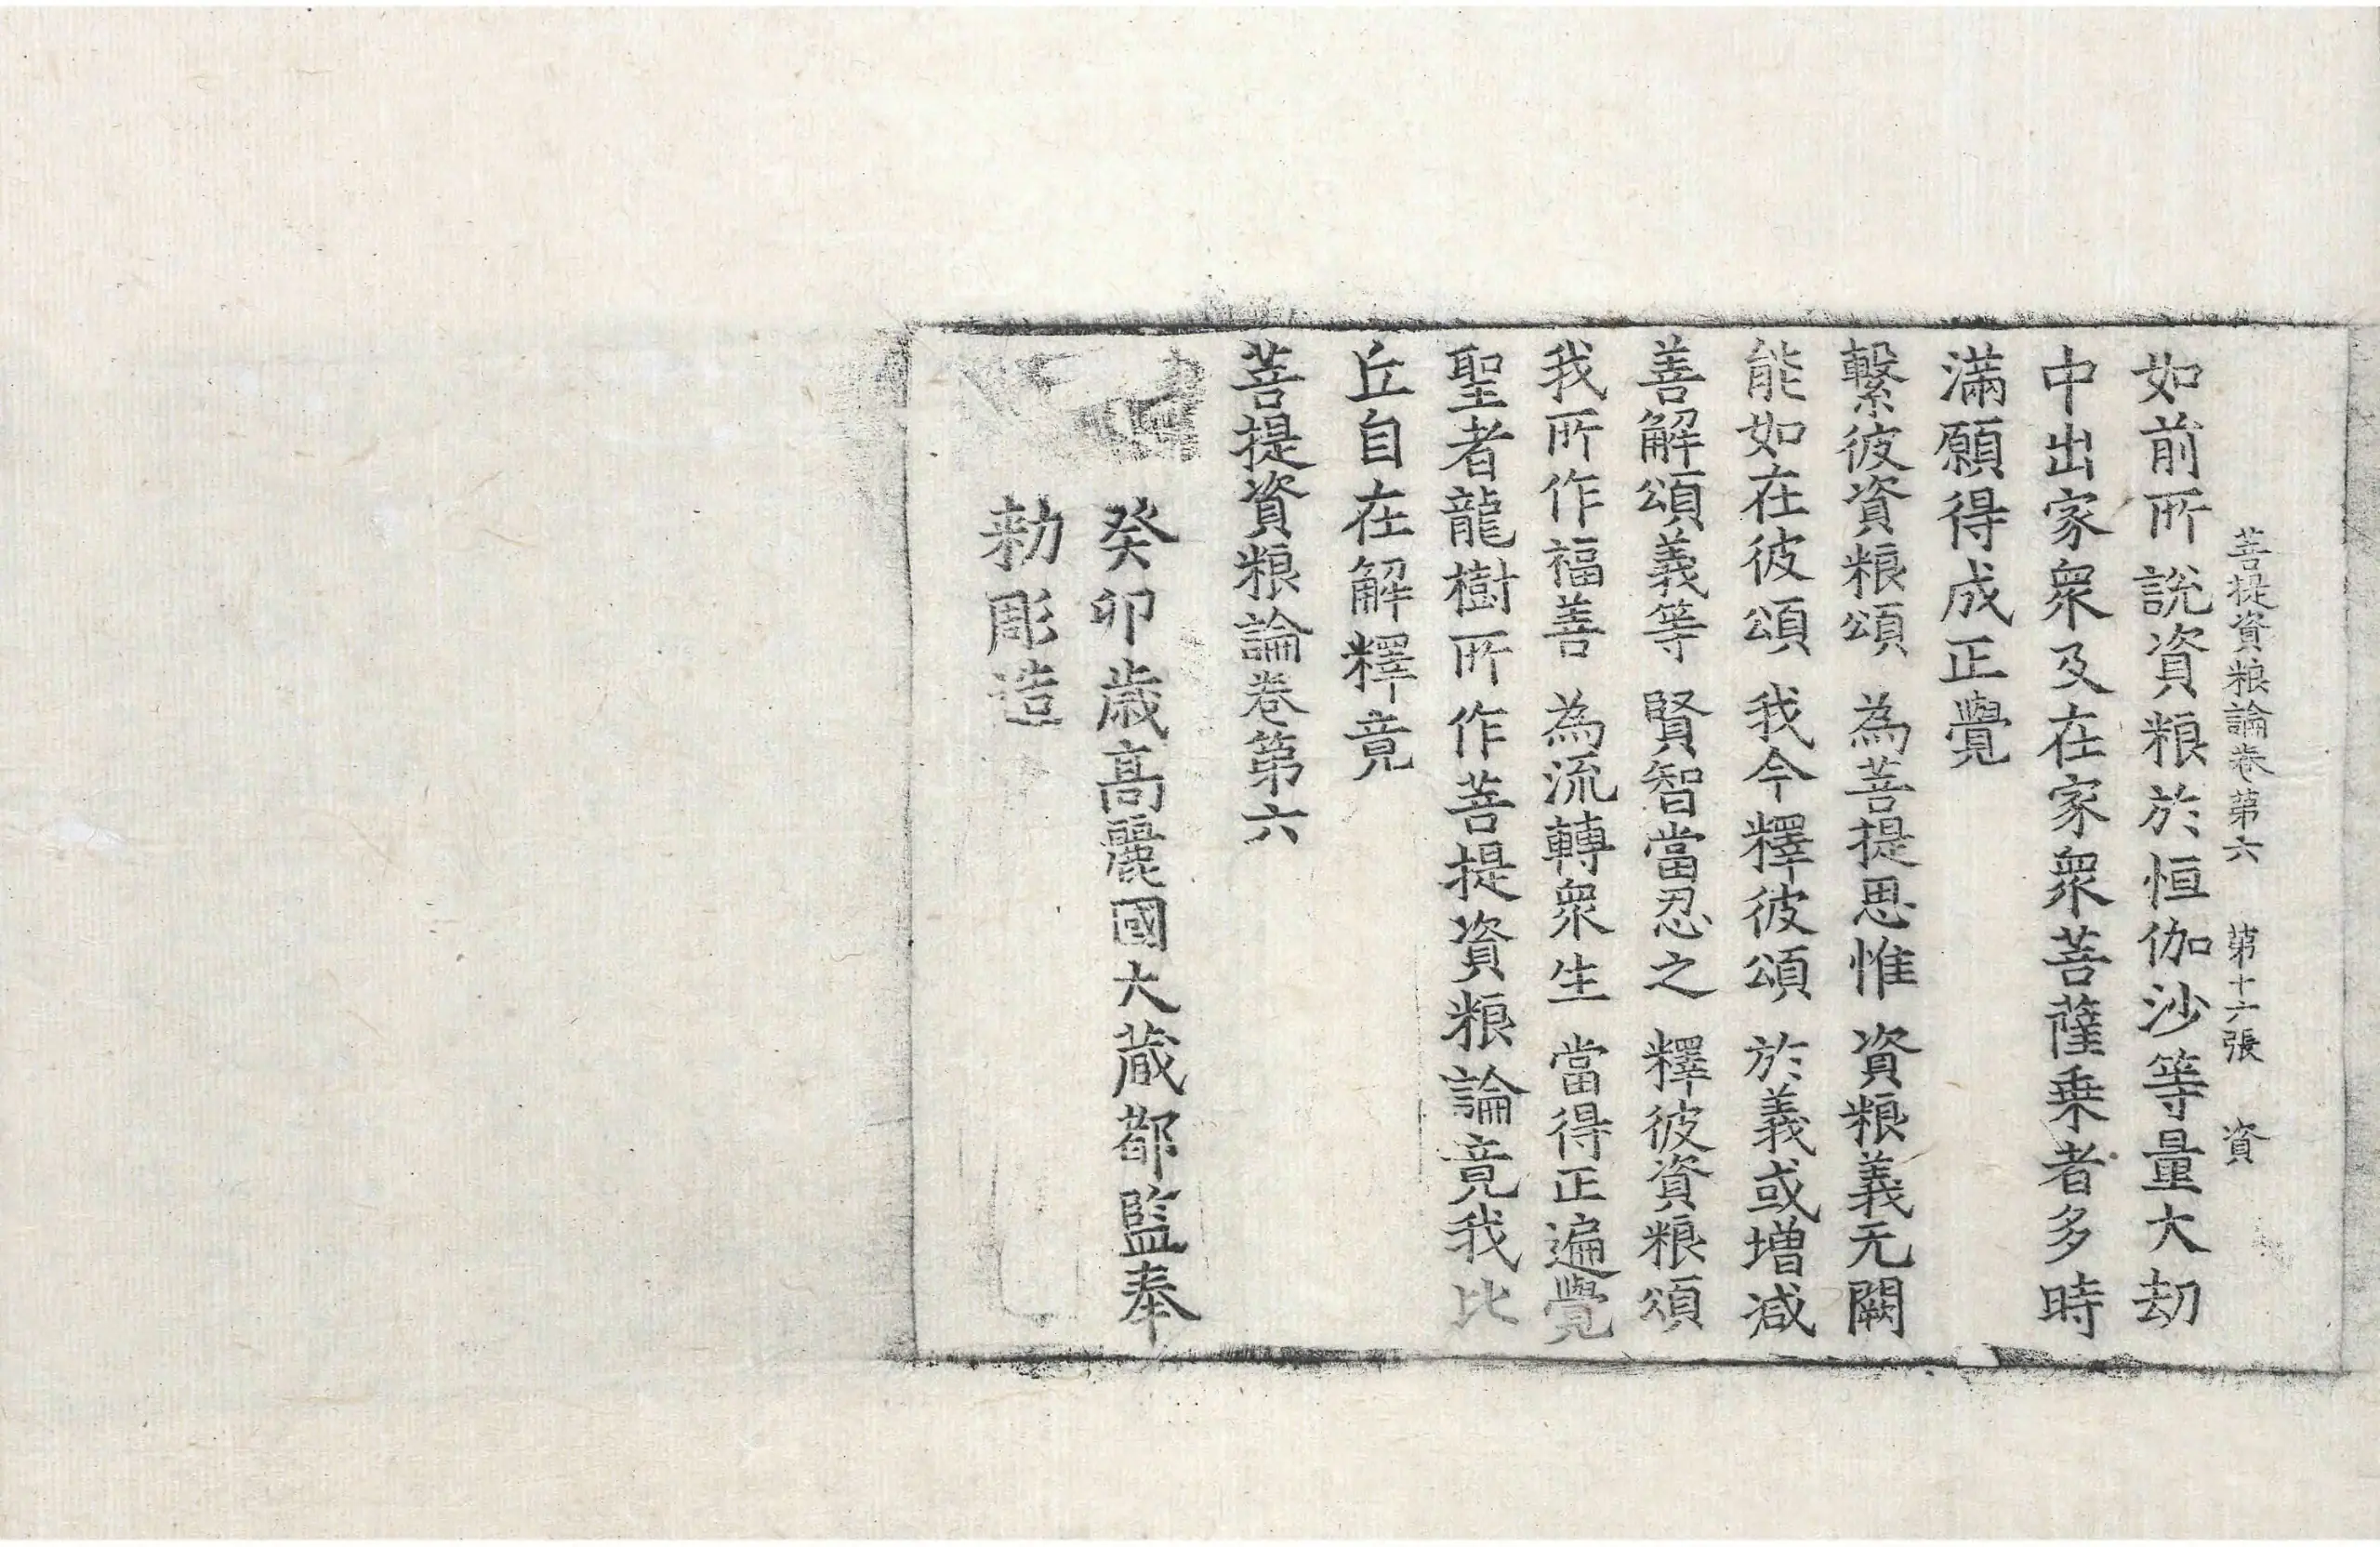 菩提資粮論卷第六 第十六張 資
如前所說資粮於恒伽沙等量大劫
中出家衆及在家衆菩薩乗者多時
滿願得成正覺
繫彼資粮頌 為菩提思惟 資粮義无闕
能如在彼頌 我今釋彼頌 於義或増减
善解頌義等 賢智當忍之 釋彼資粮頌
我所作福善 為流轉衆生 當得正遍覺
聖者龍樹所作菩提資粮論竟我比
丘自在解釋竟
菩提資粮論卷第六
癸卯歳高麗國大蔵都監奉
勑彫造